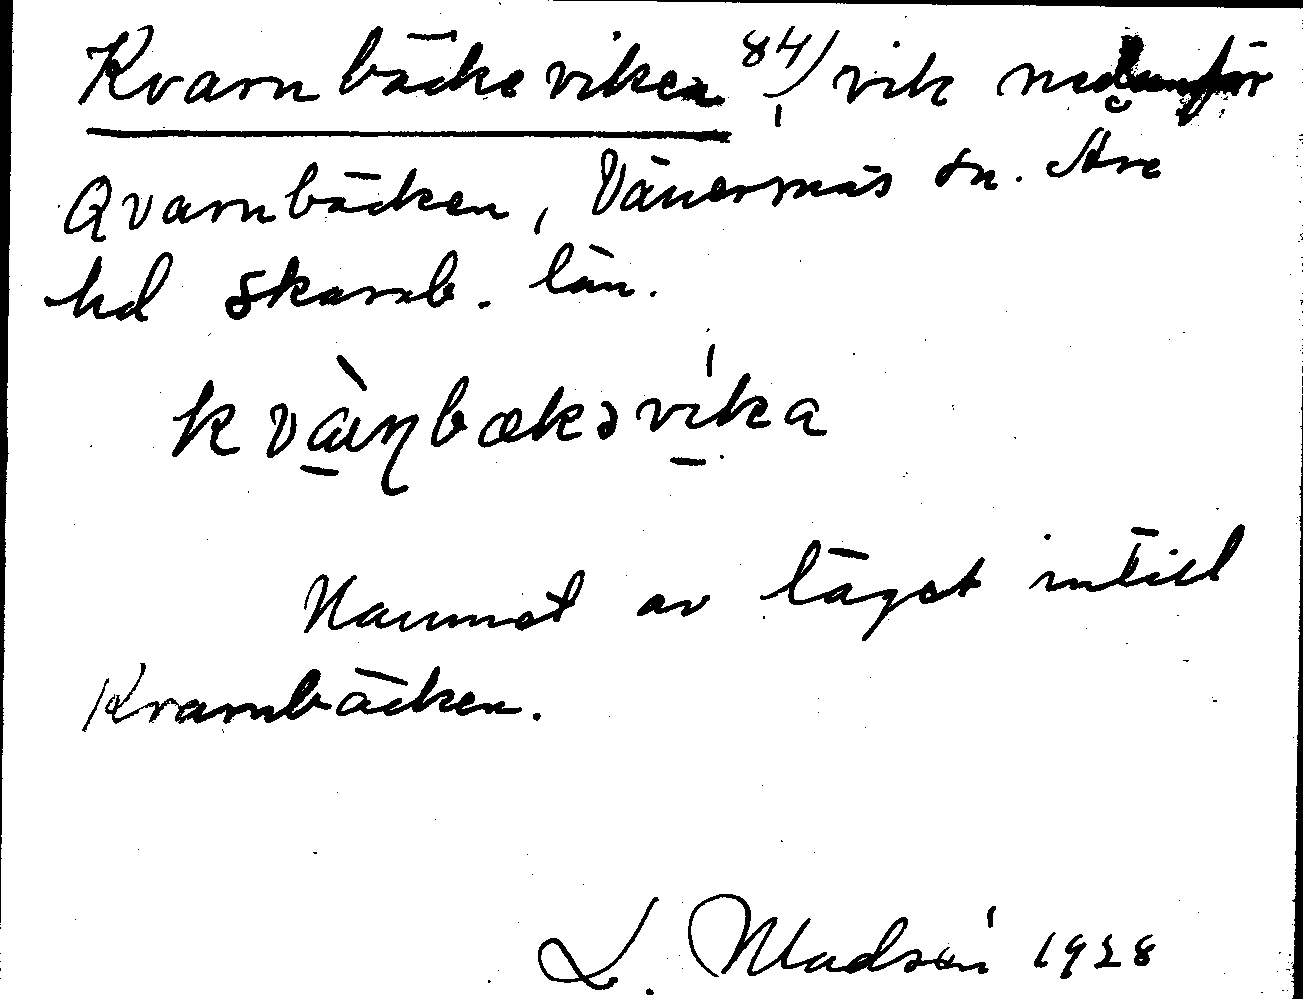 Kvarnbäckeviken 84) vik nedanför
Qvarnbäcken, Vänersnäs sn. Åse
hd Skarab. län.
kvàɳbækəvíka
Namnet av läget intill
Kvarnbäcken.
L. Madsén 1928